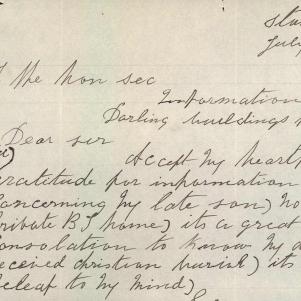 July
the hon sec
Information
Darling buildings
Dear sir
Accept my heart
gratitude for information
concerning my late son) No
private B S home) its a great
consolation to know my d
received christian burial) its
releaf to my mind)